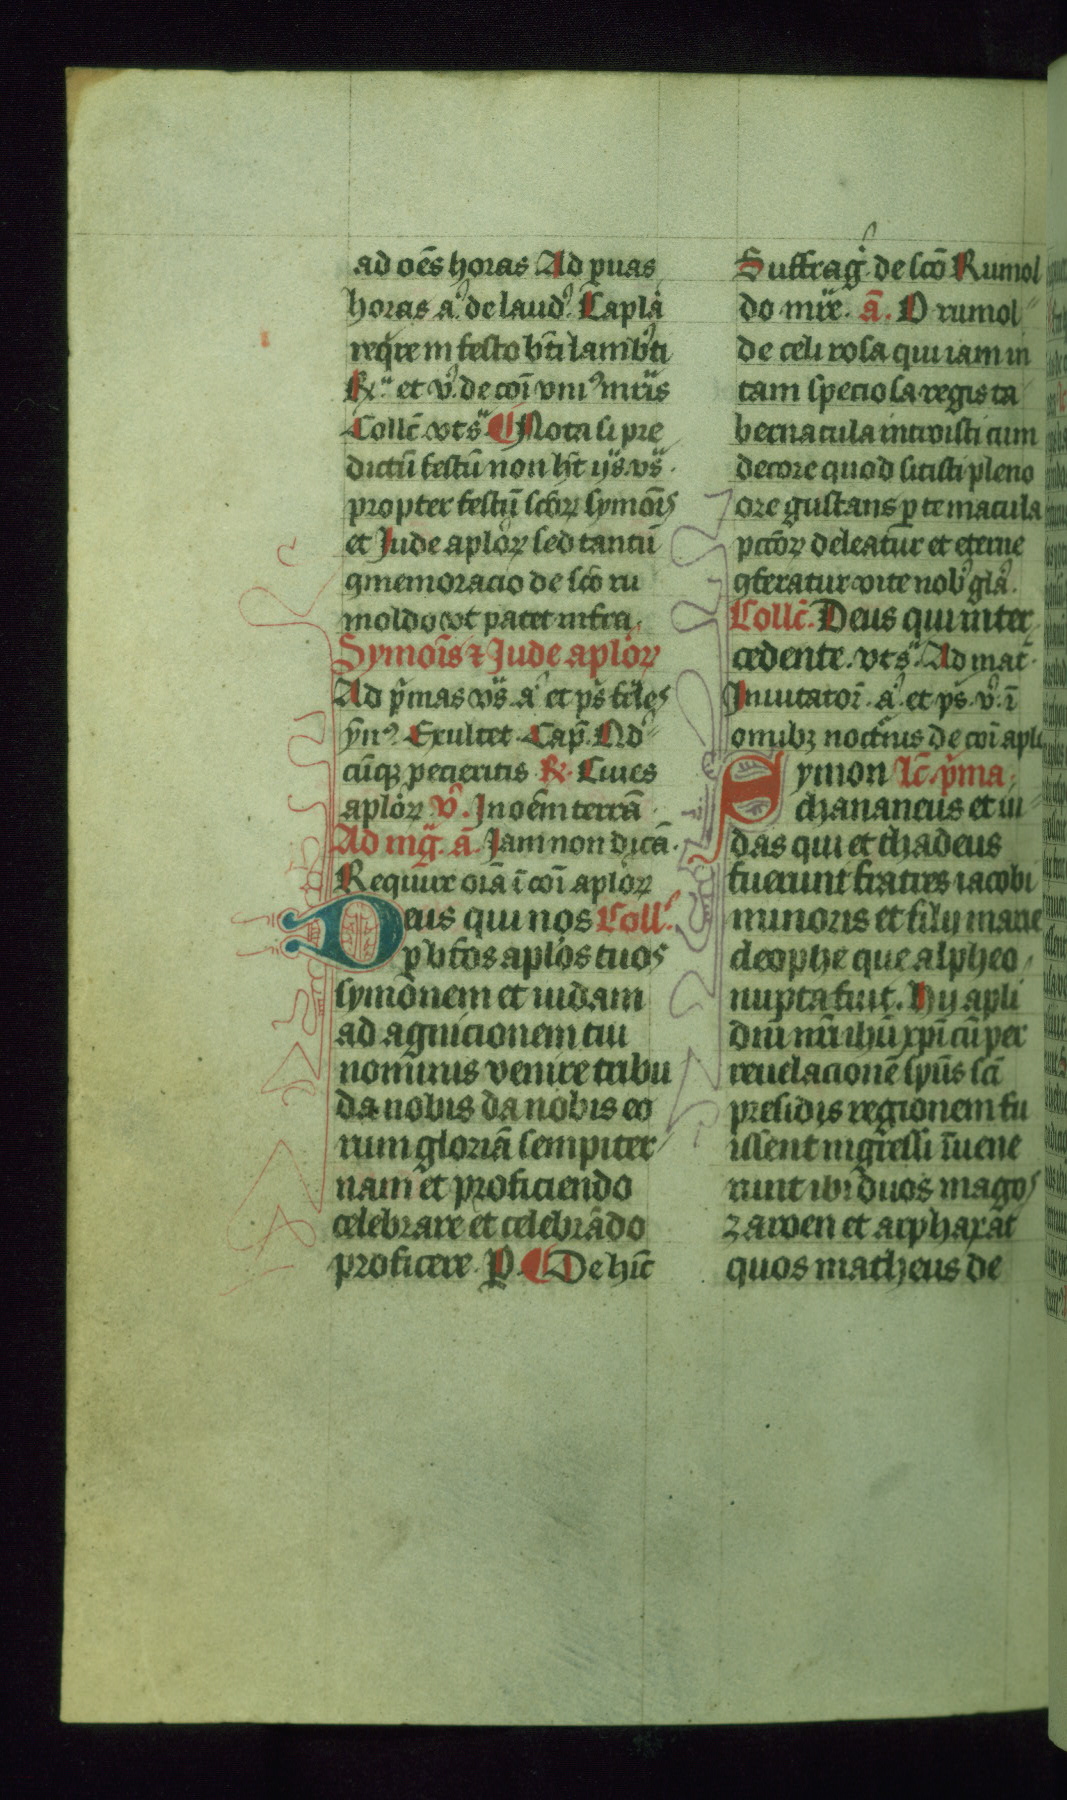 ad oēs horas Ad puas
horas a̾ de laud̾ Capl̾a
req̄re in festo bt̄i lamb̾ti
R̸ et v̾ de coī vni⁹ mr̄is
Collc̄ vt s̾ ¶ Nota si pre
dictū festū non ht̄ ijs vs̾
propter festū scōrꝝ symōis
et Jude aplōrꝝ sed tantū
ꝯmemoracio de scō ru
moldo vt patet infra
Symoīs ⁊ Jude aplōrꝝ
Ad p̄mas vs̾ a̾ et ps̄ fr̄les
yn̾ Exultet Cap̄ Ad
cūqꝫ pecieritis R̸ Ciues
aplōrꝝ v̾ In oēm terrā
Ad mg̾ ā Jam non dicā
Require orā ī coī aplōrꝝ
Deus qui nos Coll̾
ꝑ btōs aplōs tuos
symonem et iudam
ad agnicionem tui
nominis venire tribu
da nobis da nobis eo
rum gloriā sempiter
nam et proficiendo
celebrare et celebrādo
proficere P̱ ¶ De hiīc
Suffrag̾ de scō Rumol
do mr̄e ā O rumol
de celi rosa qui iam in
tam speciosa regis ta
bernacula introisti cum
decore quod sitisti pleno
ore gustans ꝑ te macula
pcc̄orꝝ deleatur et eterne
ꝯferatur vite nob̾ gl̾a
Collc̄ Deus qui inter
cedente vt s̾ Ad mat̄
Inuitatoꝛ̄ a̾ et ps̄ v̾ ī
omibꝫ noct̾nis de coī apl̄
Symon lc̄ p̄ma
chananeus et iu
das qui et thadeus
fuerunt fratres iacobi
minoris et filij marie
cleophe que alpheo
nupta fuit. Hij apli
dn̄i nr̄i ihū xp̄i cū per
reuelacionē sp̄us sc̄i
presidis regionem fu
issent ingressi īuene
runt ibi duos magos
zaroen et arphaxat
quos matheus de